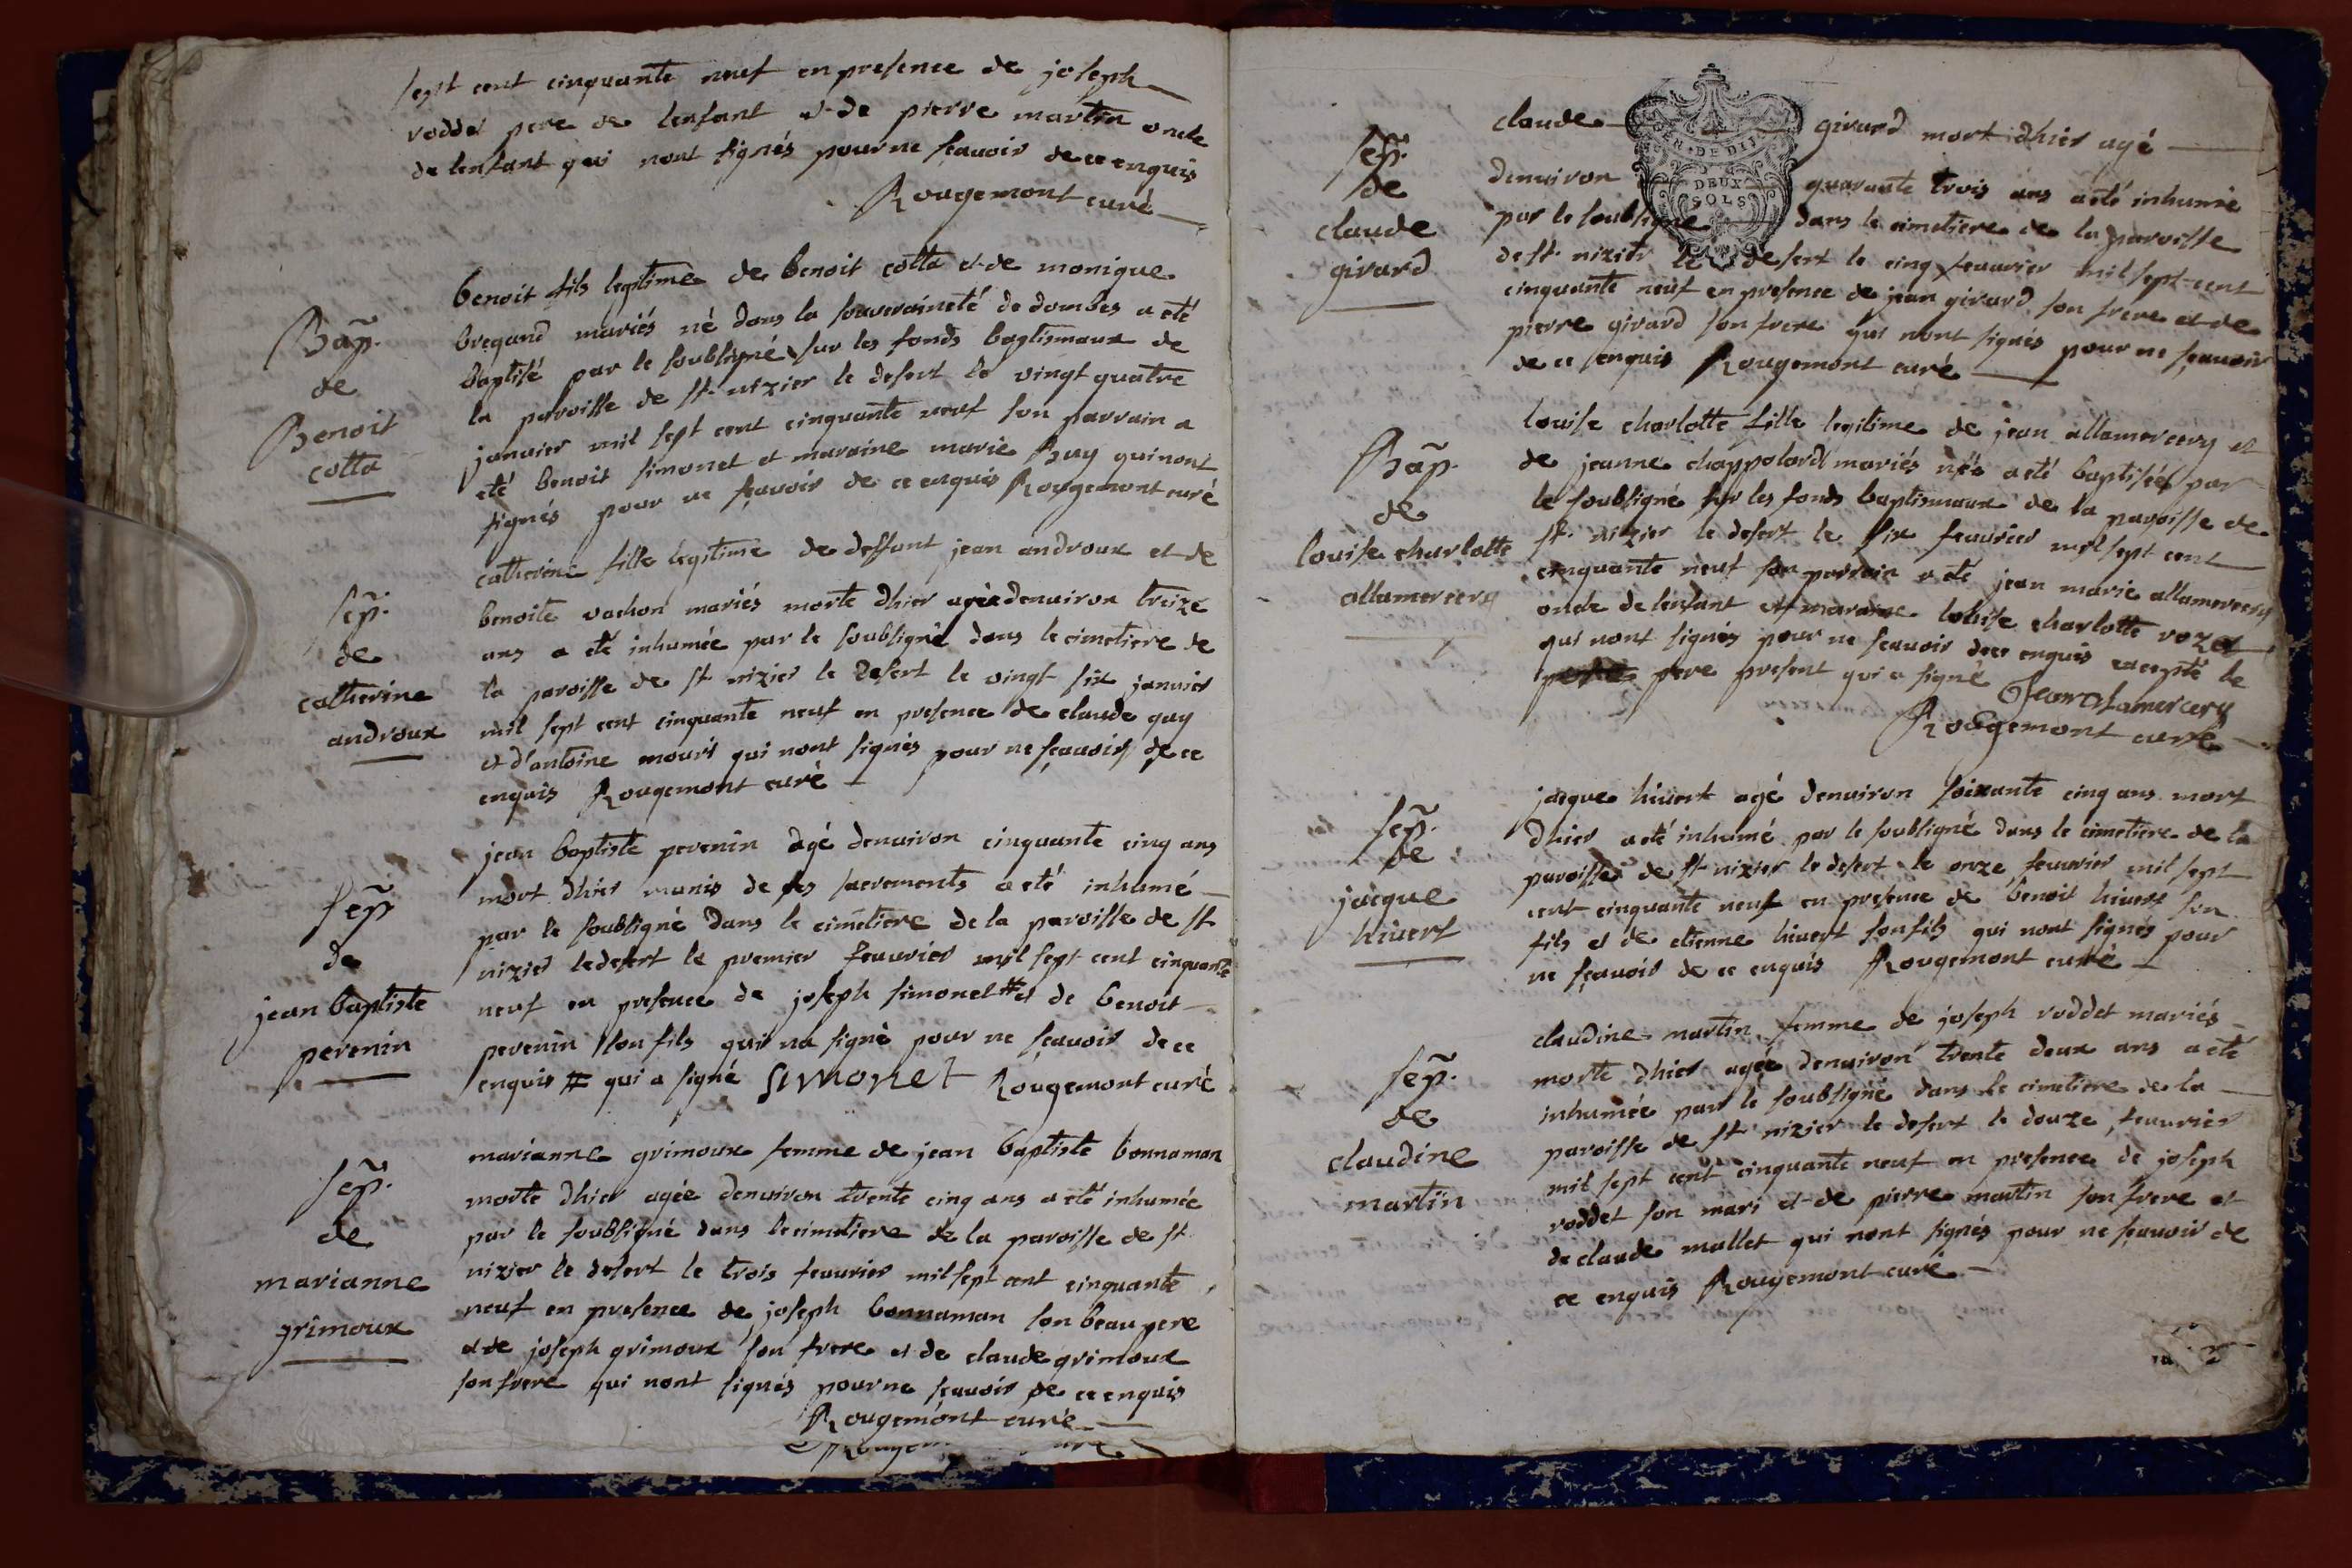 sept cent cinquante neuf en presence de joseph
roddet pere de lenfant et de pierre martin oncle
de lenfant qui nont signés pour ne scavoir de ce enquis
Rougemont curé
Bap.
de
Benoit
cotta
benoit fils legitime de benoit cotta et de monique
bregand mariés né dans la souveraineté de dombes a eté
baptisé par le soubsigné sur les fonds baptismaux de
la paroisse de st nizier le desert le vingt quatre
janvier mil sept cent cinquante neuf son parrain a
eté benoit simonet et maraine marie Buy qui nont
signés pour ne sçavoir de ce enquis Rougemont curé
sep.
de
catherine
androux
catherine fille legitime de deffunt jean androux et de
benoite vachon mariés morte dhier agée denuiron treize
ans a eté inhumée par le soubsigné dans le cimetiere de
la paroisse de st nizier le desert le vingt six janvier
mil sept cent cinquante neuf en presence de claude guy
et d'antoine mouri qui nont signés pour ne sçauoir de ce
enquis Rougemont curé
sep
de
jean baptiste
perenin
jean baptiste perenin agé denuiron cinquante cinq ans
mort dhier munis de ses sacrements a eté inhumé
par le soubsigné dans le cimetiere de la paroisse de st
nizier le desert le premier feuurier mil sept cent cinquante
neuf en presence de joseph simonet # et de benoit
perenin son fils qui na signé pour ne sçauoir de ce
enquis # qui a signé simonet Rougemont curé
sep.
de
marianne
grimoux
marianne grimoux femme de jean baptiste bonnaman
morte dhier agée denuiron trente cinq ans a eté inhumée
par le soubsigné dans le cimetiere de la paroisse de st
nizier le desert le trois feuurier mil sept cent cinquante
neuf en presence de joseph bonnaman son beau pere
et de joseph grimoux son frere et de claude grimoux
son frere qui nont signés pour ne scauoir de ce enquis
Rougemont curé
sep.
de
claude
girard
DEUX
SOLS
claude girard mort dhier agé
denuiron quarante trois ans a eté inhumé
par le soubsigné dans le cimetiere de la paroisse
de st nizier le desert le cinq feuurier mil sept cent
cinquante neuf en presence de jean girard son frere et de
pierre girard son frere qui nont signés pour ne sçauoir
de ce enquis Rougemont curé
Bap.
de
louise charlotte
allamercery
louise charlotte fille legitime de jean allamercery et
de jeanne chappolard mariés née a eté baptisée par
le soubsigné sur les fonds baptismaux de la paroisse de
st nizier le desert le six feuurier mil sept cent
cinquante neuf son parrain a eté jean marie allamercery
oncle de lenfant et maraine louise charlotte rozet
qui nont signés pour ne scauoir de ce enquis excepté le
pere present qui a signé Jean alamercery
Rougemont curé
sep.
de
jacque
hiuert
jacque hiuert agé denuiron soixante cinq ans mort
dhier a eté inhumé par le soubsigné dans le cimetiere de la
paroisse de st nizier le desert le onze feuurier mil sept
cent cinquante neuf en presence de benoit hiuert son
fils et de etienne hiuert son fils qui nont signés pour
ne sçauoir de ce enquis Rougemont curé
sep.
de
claudine
martin
claudine martin femme de joseph roddet mariés
morte dhier agée denuiron trente deux ans a eté
inhumée par le soubsigné dans le cimetiere de la
paroisse de st nizier le desert le douze feuurier
mil sept cent cinquante neuf en presence de joseph
roddet son mari et de pierre martin son frere et
de claude mallet qui nont signés pour ne sçauoir de
ce enquis Rougemont curé